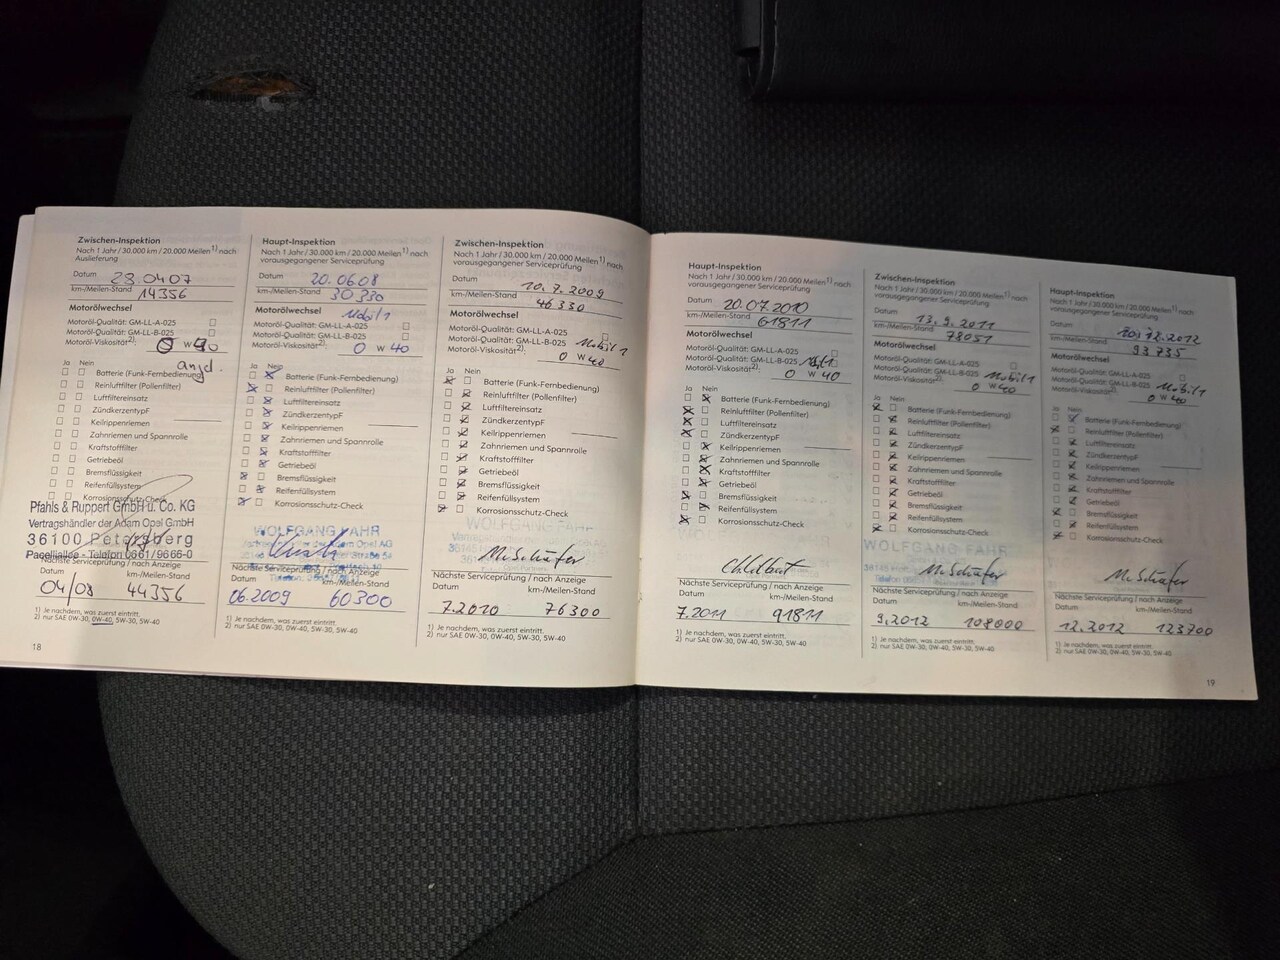 Zwischen-Inspektion
Nach 1 Jahr / 30.000 km / 20.000 Meilen1) nach
Auslieferung
Datum
23.04.07
km-/Meilen-Stand
14356
Motorölwechsel
Motoröl-Qualität: GM-LL-A-025
GM-LL-B-025
Motoröl-Viskosität2): 0 W 40
Ja Nein
Batterie (Funk-Fernbedienung)
Reinluftfilter (Pollenfilter)
Luftfiltereinsatz
ZündkerzentypF
Keilrippenriemen
Zahnriemen und Spannrolle
Kraftstofffilter
Getriebeöl
Bremsflüssigkeit
Reifenfüllsystem
Korrosionsschutz-Check
Pfahls & Ruppert GmbH u. Co. KG
Vertragshändler der Adam Opel GmbH
36100 Petersberg
Pacelliallee - Telefon 0661/9666-0
Nächste Serviceprüfung / nach Anzeige
Datum km-/Meilen-Stand
04/08 44356
1) Je nachdem, was zuerst eintritt.
2) nur SAE 0W-30, 0W-40, 5W-30, 5W-40
18
Haupt-Inspektion
Nach 1 Jahr / 30.000 km / 20.000 Meilen1) nach
vorausgegangener Serviceprüfung
Datum 20.06.08
km-/Meilen-Stand 30330
Motorölwechsel Mobil 1
Motoröl-Qualität: GM-LL-A-025
GM-LL-B-025
Motoröl-Viskosität2): 0 W 40
Ja Nein
Batterie (Funk-Fernbedienung)
Reinluftfilter (Pollenfilter)
Luftfiltereinsatz
ZündkerzentypF
Keilrippenriemen
Zahnriemen und Spannrolle
Kraftstofffilter
Getriebeöl
Bremsflüssigkeit
Reifenfüllsystem
Korrosionsschutz-Check
WOLFGANG FAHR
Nächste Serviceprüfung / nach Anzeige
Datum km-/Meilen-Stand
06.2009 60300
1) Je nachdem, was zuerst eintritt.
2) nur SAE 0W-30, 0W-40, 5W-30, 5W-40
Zwischen-Inspektion
Nach 1 Jahr / 30.000 km / 20.000 Meilen1) nach
vorausgegangener Serviceprüfung
Datum 10.7.2009
km-/Meilen-Stand 46330
Motorölwechsel
Motoröl-Qualität: GM-LL-A-025
GM-LL-B-025 Mobil 1
Motoröl-Viskosität2): 0 W 40
Ja Nein
Batterie (Funk-Fernbedienung)
Reinluftfilter (Pollenfilter)
Luftfiltereinsatz
ZündkerzentypF
Keilrippenriemen
Zahnriemen und Spannrolle
Kraftstofffilter
Getriebeöl
Bremsflüssigkeit
Reifenfüllsystem
Korrosionsschutz-Check
WOLFGANG FAHR
M. Schäfer
Nächste Serviceprüfung / nach Anzeige
Datum km-/Meilen-Stand
7.2010 76300
1) Je nachdem, was zuerst eintritt.
2) nur SAE 0W-30, 0W-40, 5W-30, 5W-40
Haupt-Inspektion
Nach 1 Jahr / 30.000 km / 20.000 Meilen1) nach
vorausgegangener Serviceprüfung
Datum 20.07.2010
km-/Meilen-Stand 61811
Motorölwechsel
Motoröl-Qualität: GM-LL-A-025
GM-LL-B-025
Motoröl-Viskosität2): 0 W 40
Ja Nein
Batterie (Funk-Fernbedienung)
Reinluftfilter (Pollenfilter)
Luftfiltereinsatz
ZündkerzentypF
Keilrippenriemen
Zahnriemen und Spannrolle
Kraftstofffilter
Getriebeöl
Bremsflüssigkeit
Reifenfüllsystem
Korrosionsschutz-Check
Nächste Serviceprüfung / nach Anzeige
Datum km-/Meilen-Stand
7.2011 91811
1) Je nachdem, was zuerst eintritt.
2) nur SAE 0W-30, 0W-40, 5W-30, 5W-40
Zwischen-Inspektion
Nach 1 Jahr / 30.000 km / 20.000 Meilen1) nach
vorausgegangener Serviceprüfung
Datum 13.9.2011
km-/Meilen-Stand 78051
Motorölwechsel
Motoröl-Qualität: GM-LL-A-025
GM-LL-B-025 Mobil 1
Motoröl-Viskosität2): 0 W 40
Ja Nein
Batterie (Funk-Fernbedienung)
Reinluftfilter (Pollenfilter)
Luftfiltereinsatz
ZündkerzentypF
Keilrippenriemen
Zahnriemen und Spannrolle
Kraftstofffilter
Getriebeöl
Bremsflüssigkeit
Reifenfüllsystem
Korrosionsschutz-Check
WOLFGANG FAHR
M. Schäfer
Nächste Serviceprüfung / nach Anzeige
Datum km-/Meilen-Stand
9.2012 108000
1) Je nachdem, was zuerst eintritt.
2) nur SAE 0W-30, 0W-40, 5W-30, 5W-40
Haupt-Inspektion
Nach 1 Jahr / 30.000 km / 20.000 Meilen1) nach
vorausgegangener Serviceprüfung
Datum 12.2012
km-/Meilen-Stand 93735
Motorölwechsel
Motoröl-Qualität: GM-LL-A-025
GM-LL-B-025 Mobil 1
Motoröl-Viskosität2): 0 W 40
Ja Nein
Batterie (Funk-Fernbedienung)
Reinluftfilter (Pollenfilter)
Luftfiltereinsatz
ZündkerzentypF
Keilrippenriemen
Zahnriemen und Spannrolle
Kraftstofffilter
Getriebeöl
Bremsflüssigkeit
Reifenfüllsystem
Korrosionsschutz-Check
M. Schäfer
Nächste Serviceprüfung / nach Anzeige
Datum km-/Meilen-Stand
12.2012 123700
1) Je nachdem, was zuerst eintritt.
2) nur SAE 0W-30, 0W-40, 5W-30, 5W-40
19